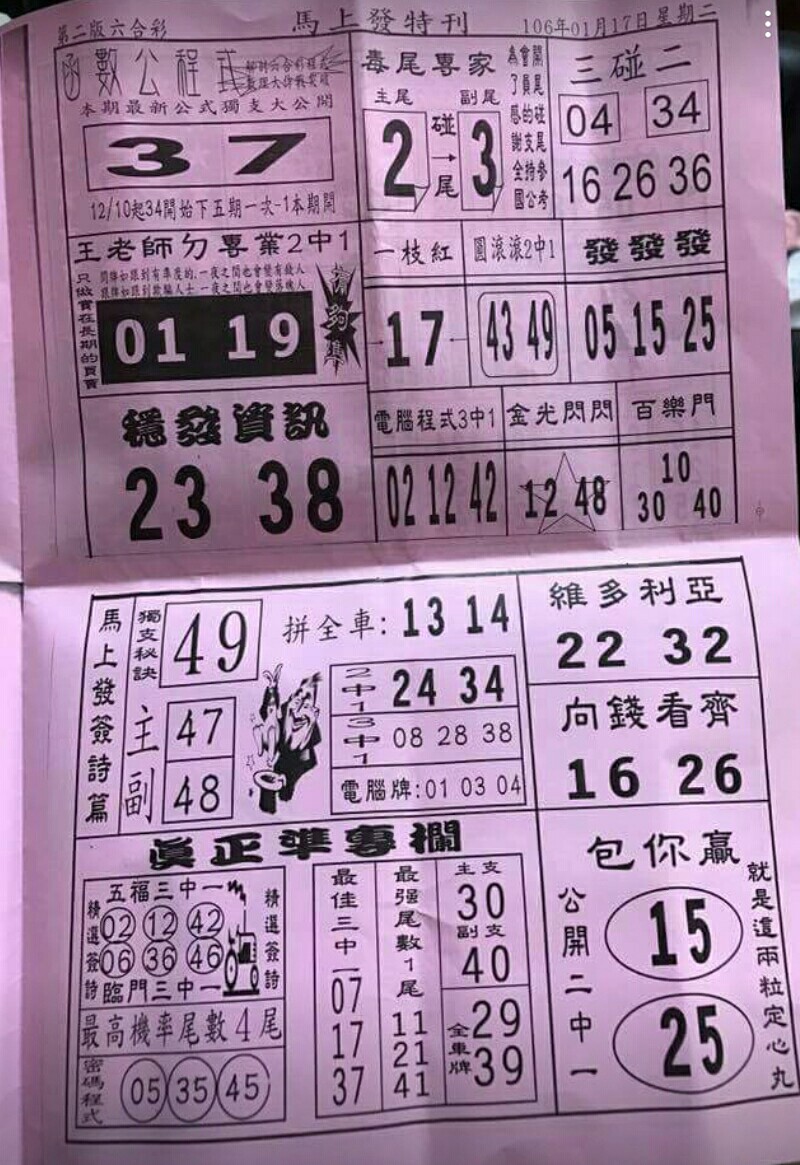 第二版六合彩
馬上發特刊
106年01月17日星期二
函數公程式
本期最新公式獨支大公開
37
12/10起34開始下五期一次-1本期開
毒尾專家
主尾
副尾
2
碰→尾
3
為了感謝全國
會員的支持公
開尾碰尾參考
三碰二
04 34
16 26 36
王老師ㄉ專業2中1
只做實在長期的買賣
01 19
有夠準
一枝紅
17
圓滾滾2中1
43 49
發發發
05 15 25
穩發資訊
23 38
電腦程式3中1
02 12 42
金光閃閃
12 48
百樂門
10
30 40
馬上發簽詩篇
獨支秘訣
49
主
47
副
48
拼全車:13 14
2中1
24 34
3中1
08 28 38
電腦牌:01 03 04
維多利亞
22 32
向錢看齊
16 26
真正準專欄
五福三中一
精選簽詩
02 12 42
06 36 46
精選簽詩
臨門三中一
最高機率尾數4尾
密碼程式
05 35 45
最佳三中一
07
17
37
最強尾數1尾
11
21
41
主支
30
副支
40
全車牌
29
39
包你贏
公開二中一
15
25
就是這兩粒定心丸